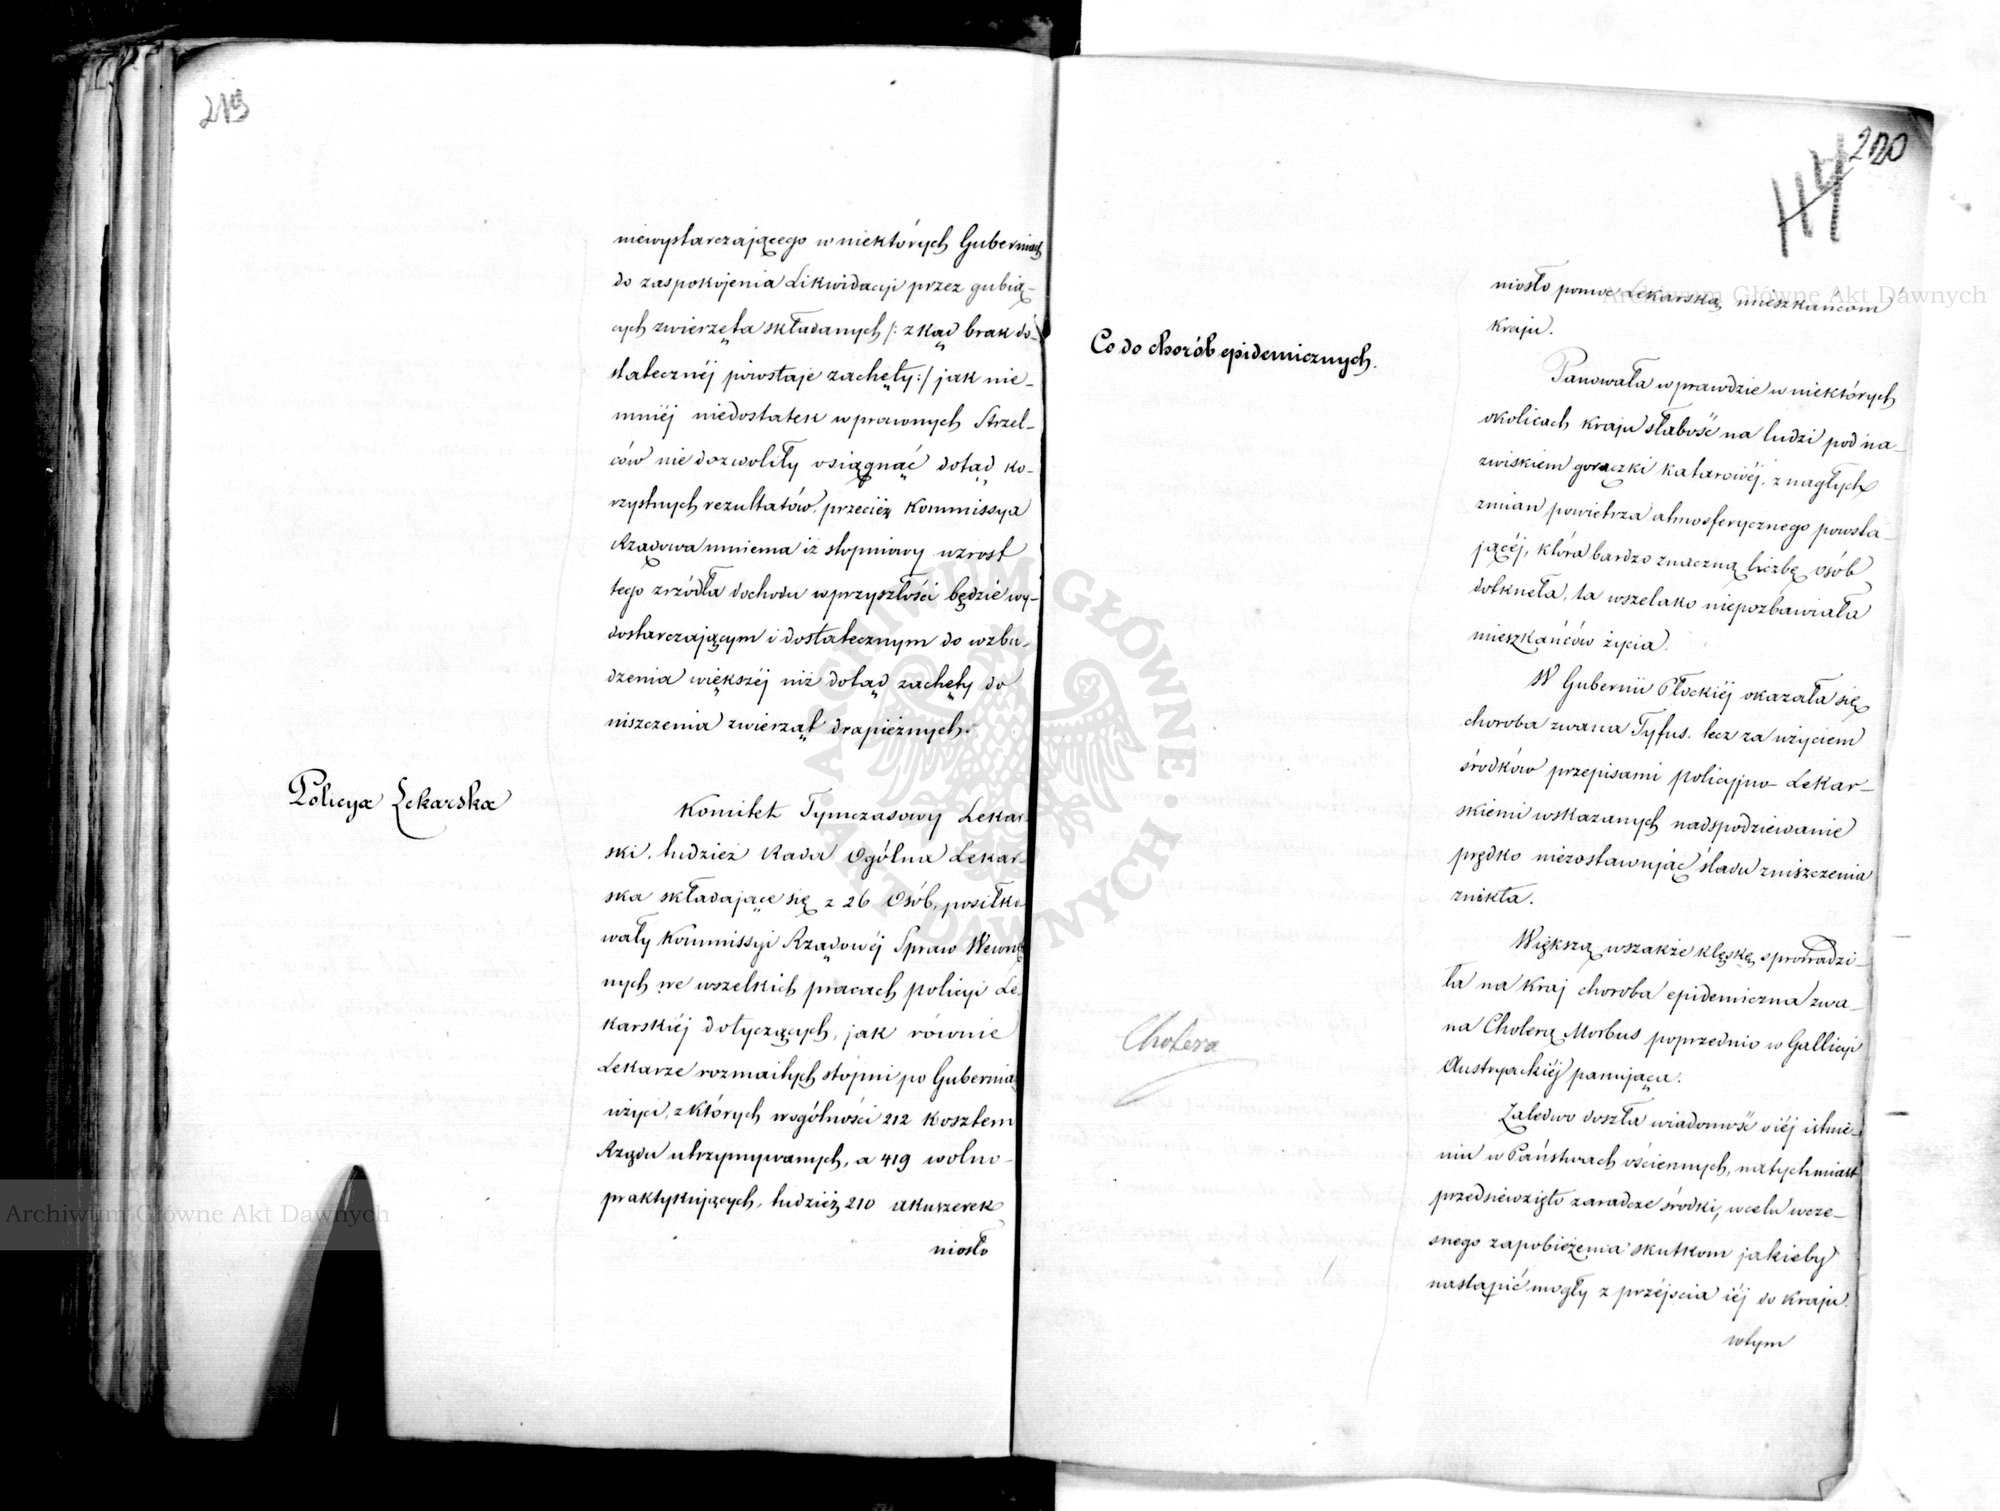 niewystarczającego w niektórych Guberniach
do zaspokojenia Likwidacyi przez gubią-
cych zwierzęta składanych /: zkąd brak do-
statecznéj powstaje zachęty :/ jak nie-
mniéj niedostatek wprawnych Strzel-
ców niedozwoliły osiągnąć dotąd ko-
rzystnych rezultatów, przecież Kommissya
Rządowa mniema iż stopniowy wzrost
tego zrzódła dochodu w przyszłości będzie wy-
dostarczającym i dostatecznym do wzbu-
dzenia większéj niż dotąd zachęty do
niszczenia zwierząt drapieżnych.
Policya Lekarska
Komitet Tymczasowy Lekar-
ski, tudzież Rada Ogólna Lekar-
ska składające się z 26 Osób, posiłko
wały Kommissyi Rządowéj Spraw Wewnę
nych we wszelkich pracach policyi Le-
karskiéj dotyczących, jak równie
Lekarze rozmaitych stopni po Gubernia
użyci, z których wogólności 212 kosztem
Rządu utrzymywanych, a 419 wolno-
praktykujących, tudzież 210 akuszerek
niosło
220
114
niosło pomoc Lekarską mieszkańcom
kraju.
Co do chorób epidemicznych.
Panowała wprawdzie w niektórych
okolicach kraju słabość na ludzi pod na-
zwiskiem gorączki katarowéj, z nagłych
zmian powietrza atmosferycznego powsta-
jącéj, która bardzo znaczną liczbę osób
dotknęła, ta wszelako niepozbawiała
mieszkańców życia.
W Gubernii Płockiéj okazała się
choroba zwana Tyfus. lecz za użyciem
środków przepisami policyjno Lekar-
skiemi wskazanych nadspodziewanie
prędko niezostawując śladu zniszczenia
znikła.
Większą wszakże klęskę sprowadzi-
ła na kraj choroba epidemiczna zwa-
na Cholerą Morbus poprzednio w Gallicyi
Austryackiéj panująca.
Cholera
Zaledwo doszła wiadomość o iéj istnie-
niu w Państwach ościennych, natychmiast
przedsięwzięto zaradcze środki, w celu wcze-
snego zapobieżenia skutkom jakieby
nastąpić mogły z przéjścia iéj do kraju.
wtym
Archiwum Główne Akt Dawnych
Archiwum Główne Akt Dawnych
ARCHIWUM GŁÓWNE AKT DAWNYCH